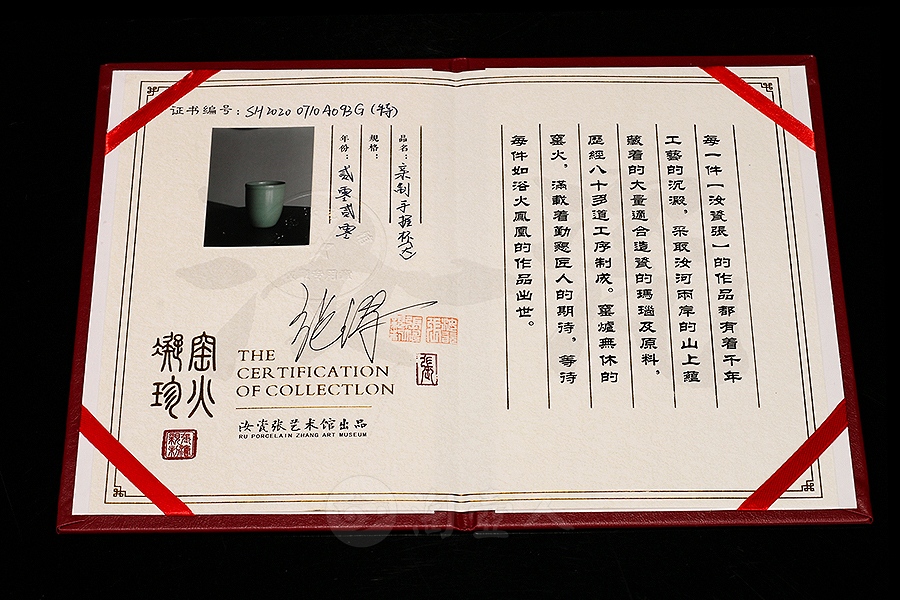 证书编号：SH2020 0710A093G（特）
品名：亲制手握杯
规格：
年份：贰零贰零
窑火
凝珍
THE
CERTIFICATION
OF COLLECTLON
汝瓷张艺术馆出品
RU PORCELAIN ZHANG ART MUSEUM
每一件（汝瓷張）的作品都有着千年
工藝的沉澱，采取汝河兩岸的山上蘊
藏着的大量適合造瓷的瑪瑙及原料，
歷經八十多道工序制成。窑爐無休的
窑火，滿載着勤懇匠人的期待，等待
每件如浴火鳳凰的作品出世。